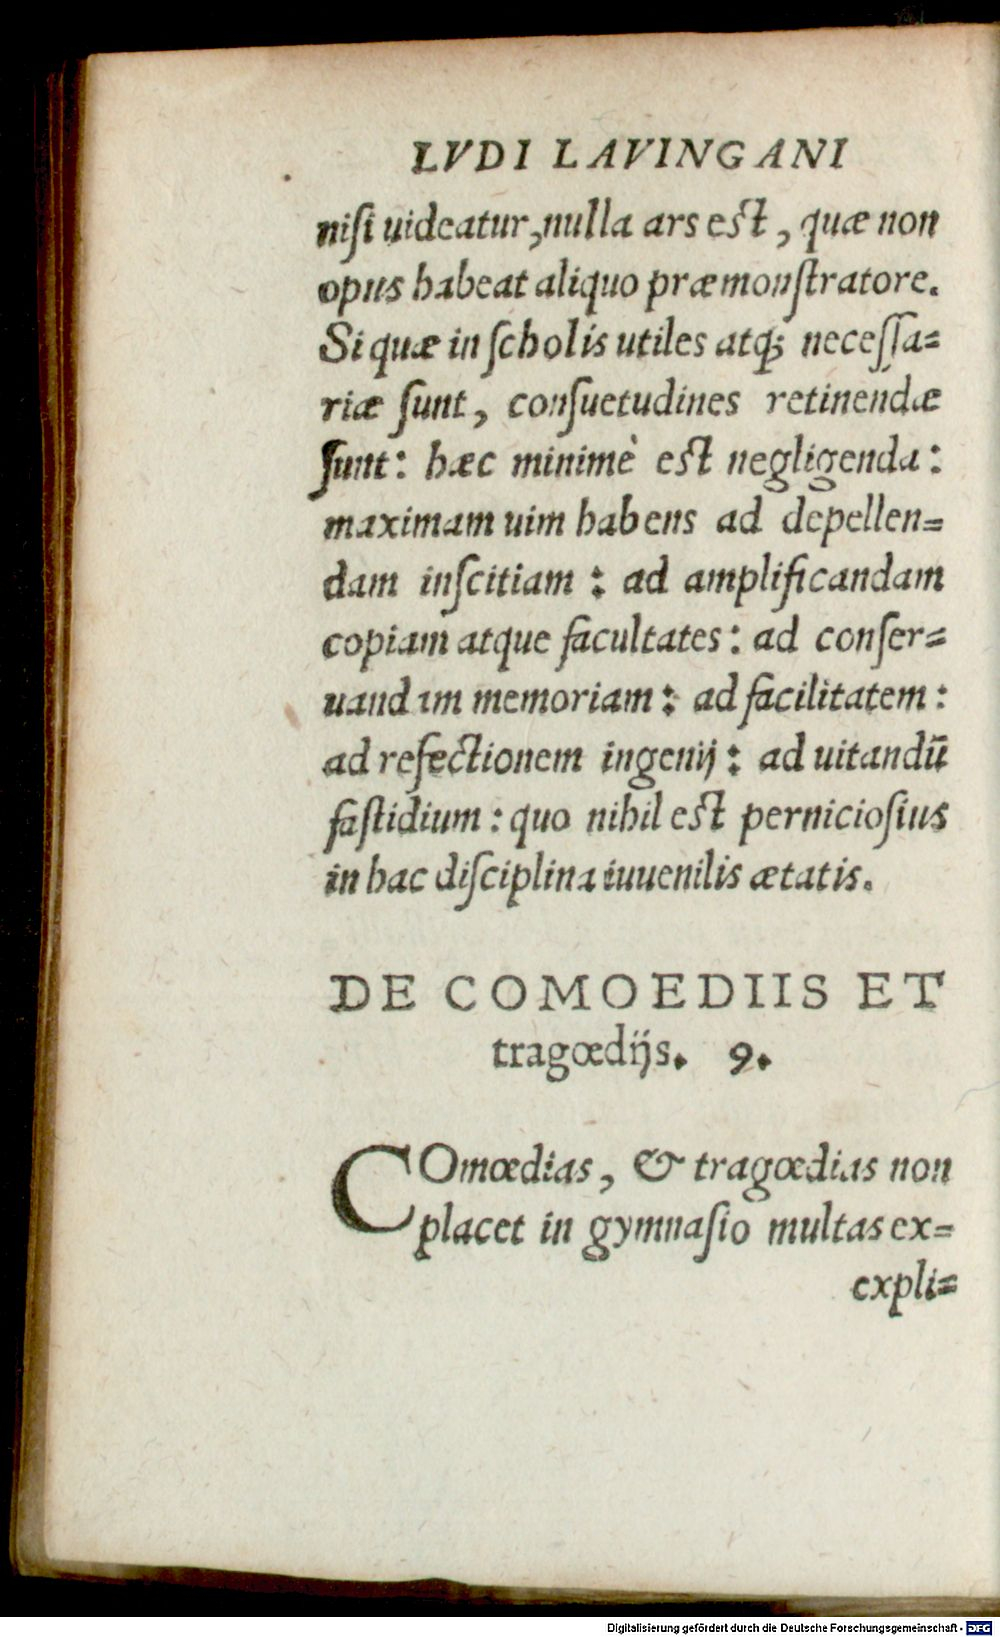 LVDI LAVINGANI
niſi uideatur, nulla ars eſt, quæ non
opus habeat aliquo præmonſtratore.
Si quæ in ſcholis utiles atq; neceſſa=
riæ ſunt, conſuetudines retinendæ
ſunt: hæc minimè eſt negligenda:
maximam uim habens ad depellen=
dam inſcitiam: ad amplificandam
copiam atque facultates: ad conſer=
uandam memoriam: ad facilitatem:
ad refectionem ingenij: ad uitandū
faſtidium: quo nihil eſt pernicioſius
in hac diſciplina iuuenilis ætatis.
DE COMOEDIIS ET
tragœdijs. 9.
COmœdias, & tragœdias non
placet in gymnaſio multas ex=
expli=
Digitalisierung gefördert durch die Deutsche Forschungsgemeinschaft - DFG